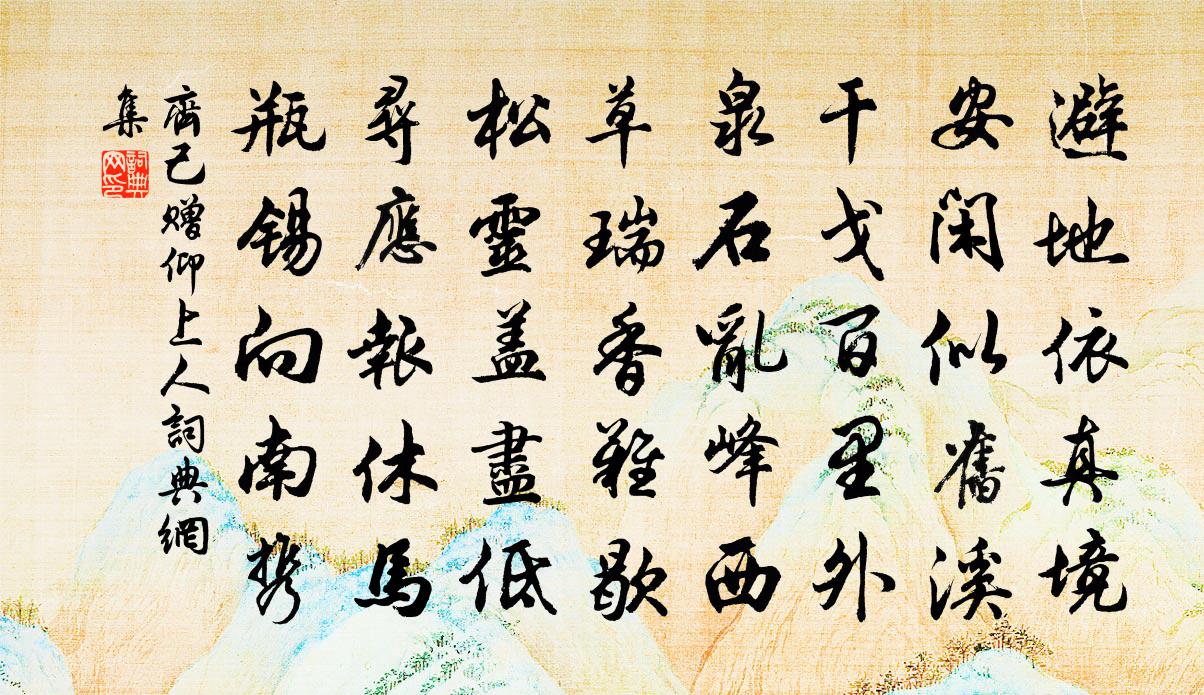 避地依真境
安閑似舊溪
干戈百里外
泉石亂峰西
草瑞香難歇
松靈盖盡低
尋應報休馬
瓶錫向南携
齊己贈仰上人詞典網
集
詞典
网印